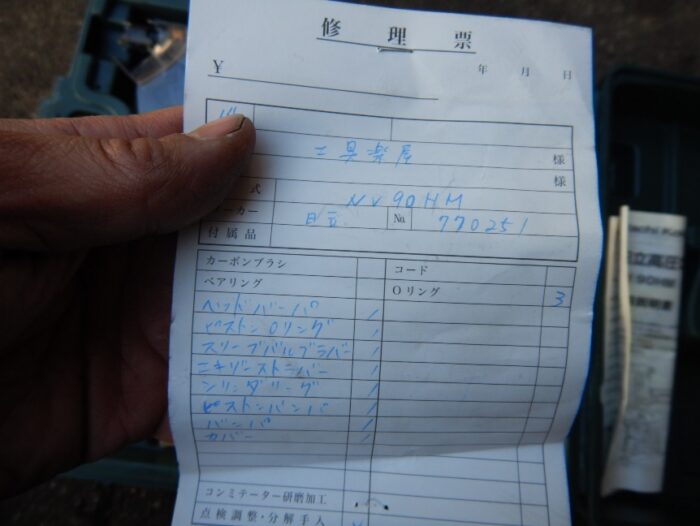 修理票
¥
年 月 日
工具楽屋 様
様
式 NV90HM
ーカー 日立 No. 770251
付属品
カーボンブラシ コード
ベアリング Oリング 3
ヘッドバンパ 1
ピストンOリング 1
スリーブバルブラバー 1
エキゾーストラバー 1
シリンダリング 1
ピストンバンパ 1
バンパ 1
カバー 1
コンミテーター研磨加工
点検調整・分解手入